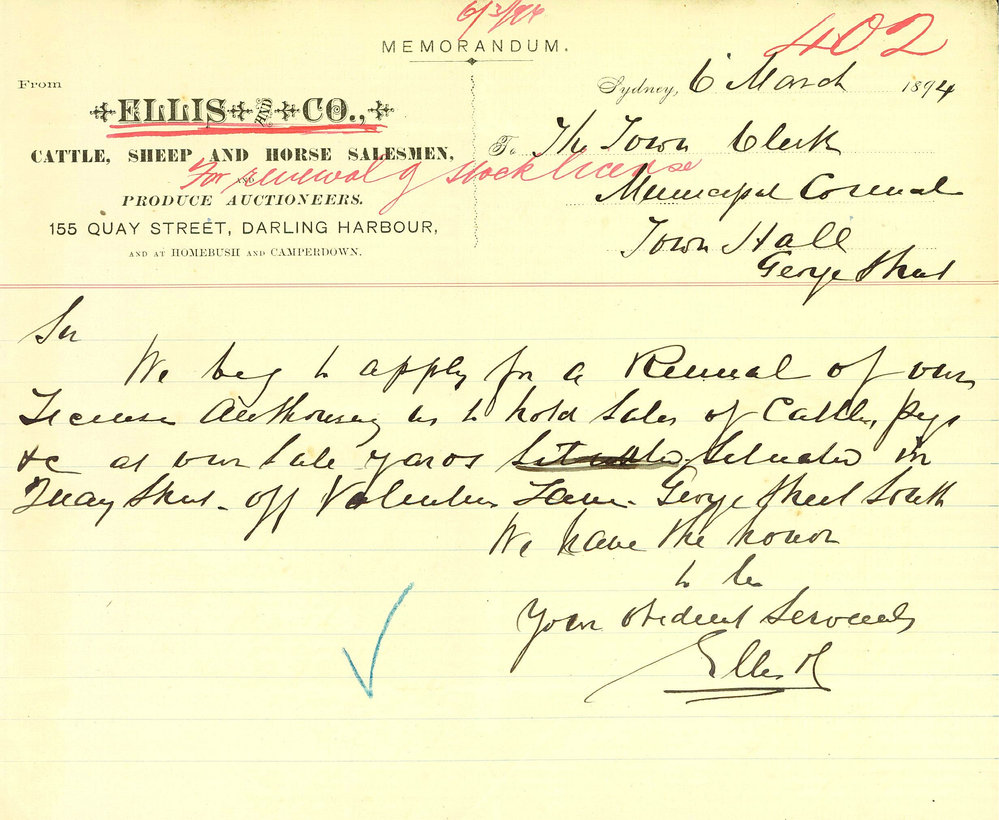 6/3/94
402
MEMORANDUM.
From
ELLIS AND CO.,
CATTLE, SHEEP AND HORSE SALESMEN,
AND
PRODUCE AUCTIONEERS.
155 QUAY STREET, DARLING HARBOUR,
AND AT HOMEBUSH AND CAMPERDOWN.
For renewal of stock license
Sydney, 6 March 1894
To The Town Clerk
Municipal Council
Town Hall
George Street
Sir
We beg to apply for a Renewal of our
License Authorising us to hold Sales of Cattle, pigs
&c at our Sale yards Situated in
Quay Street off Valentine Lane George Street South
We have the honor
to be
Your obedient Servants
Ellis & Co